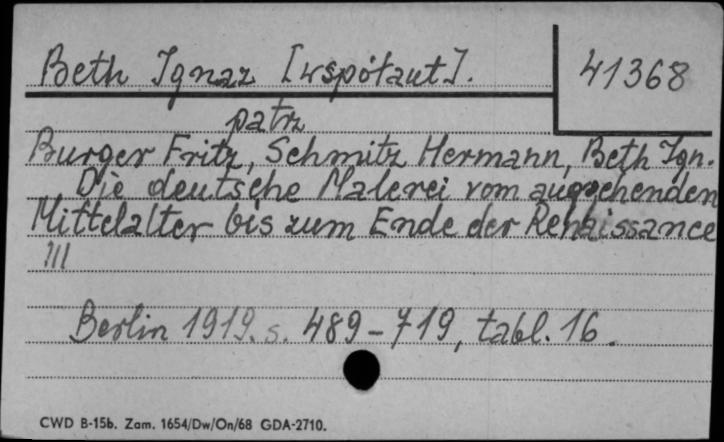 Beth Ignaz [współaut].
41368
patrz
Burger Fritz, Schmitz Hermann, Beth Ign.
Die deutsche Malerei vom ausgehenden
Mittelalter bis zum Ende der Renaissance
III
Berlin 1919. s. 489-719, tabl. 16.
CWD B-15b. Zam. 1654/Dw/On/68 GDA-2710.